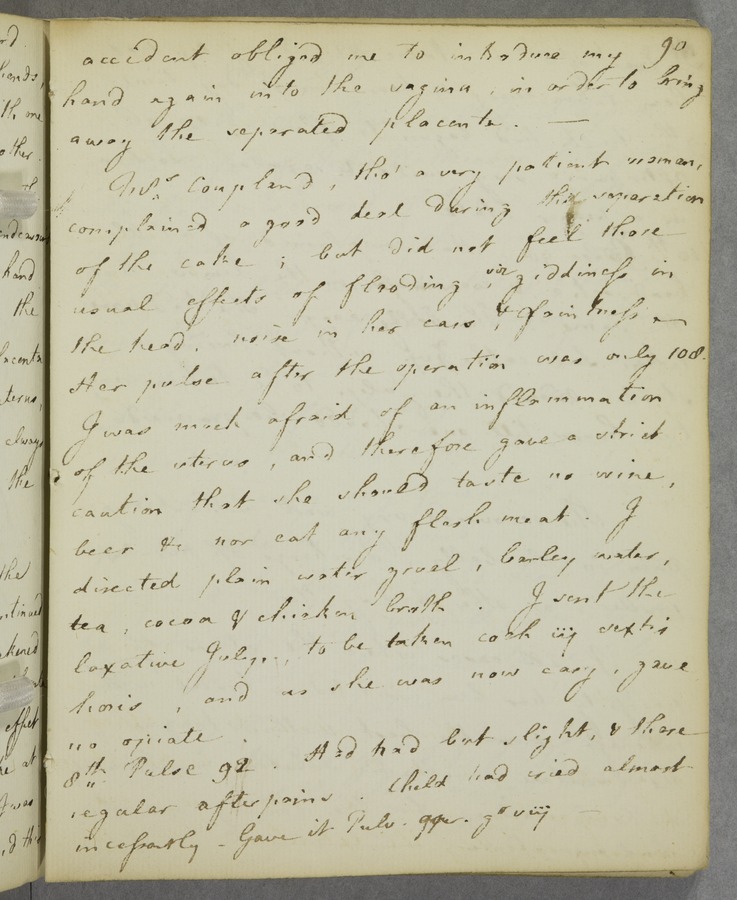 90
accident obliged me to introduce my
hand again into the vagina, in order to bring
away the separated placenta. —
Mrs. Coupland, tho' a very patient woman,
complained a good deal during the separation
of the cake; but did not feel those
usual effects of flooding viz giddiness in
the head, noise in her ears, & faintness —
Her pulse after the operation was only 108.
I was much afraid of an inflammation
of the uterus, and therefore gave a strict
caution that she should taste no wine,
beer &c nor eat any flesh meat. I
directed plain water gruel, barley water,
tea, cocoa & chicken broth. I sent the
laxative Julep, to be taken coch iij sextis
horis, and as she was now easy, gave
no opiate.
8th Pulse 92. Had had but slight, & those
regular afterpains. Child had cried almost
incessantly – Gave it Pulv. gr viij —